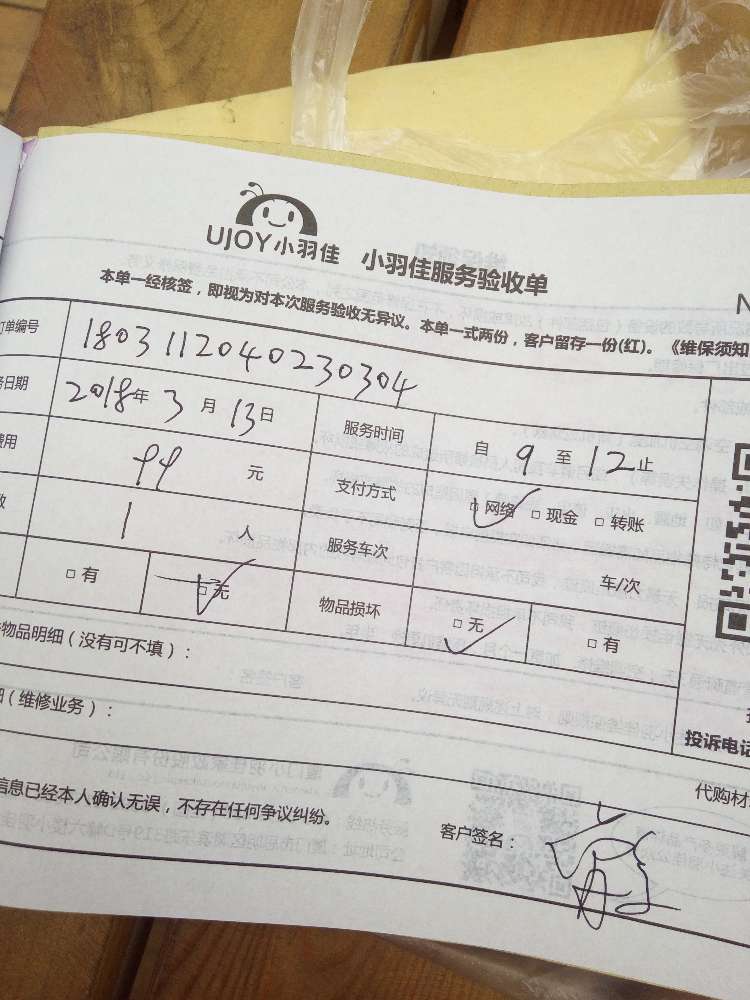 UJOY小羽佳 小羽佳服务验收单
本单一经核签，即视为对本次服务验收无异议。本单一式两份，客户留存一份(红)。《维保须知
订单编号 1803112040230304
务日期 2018年3月13日 服务时间 自9至12止
费用 99元 支付方式 网络 现金 转账
数 1人 服务车次 车/次
有 无 物品损坏 无 有
物品明细（没有可不填）：
（维修业务）：
投诉电话
代购材
信息已经本人确认无误，不存在任何争议纠纷。
客户签名：